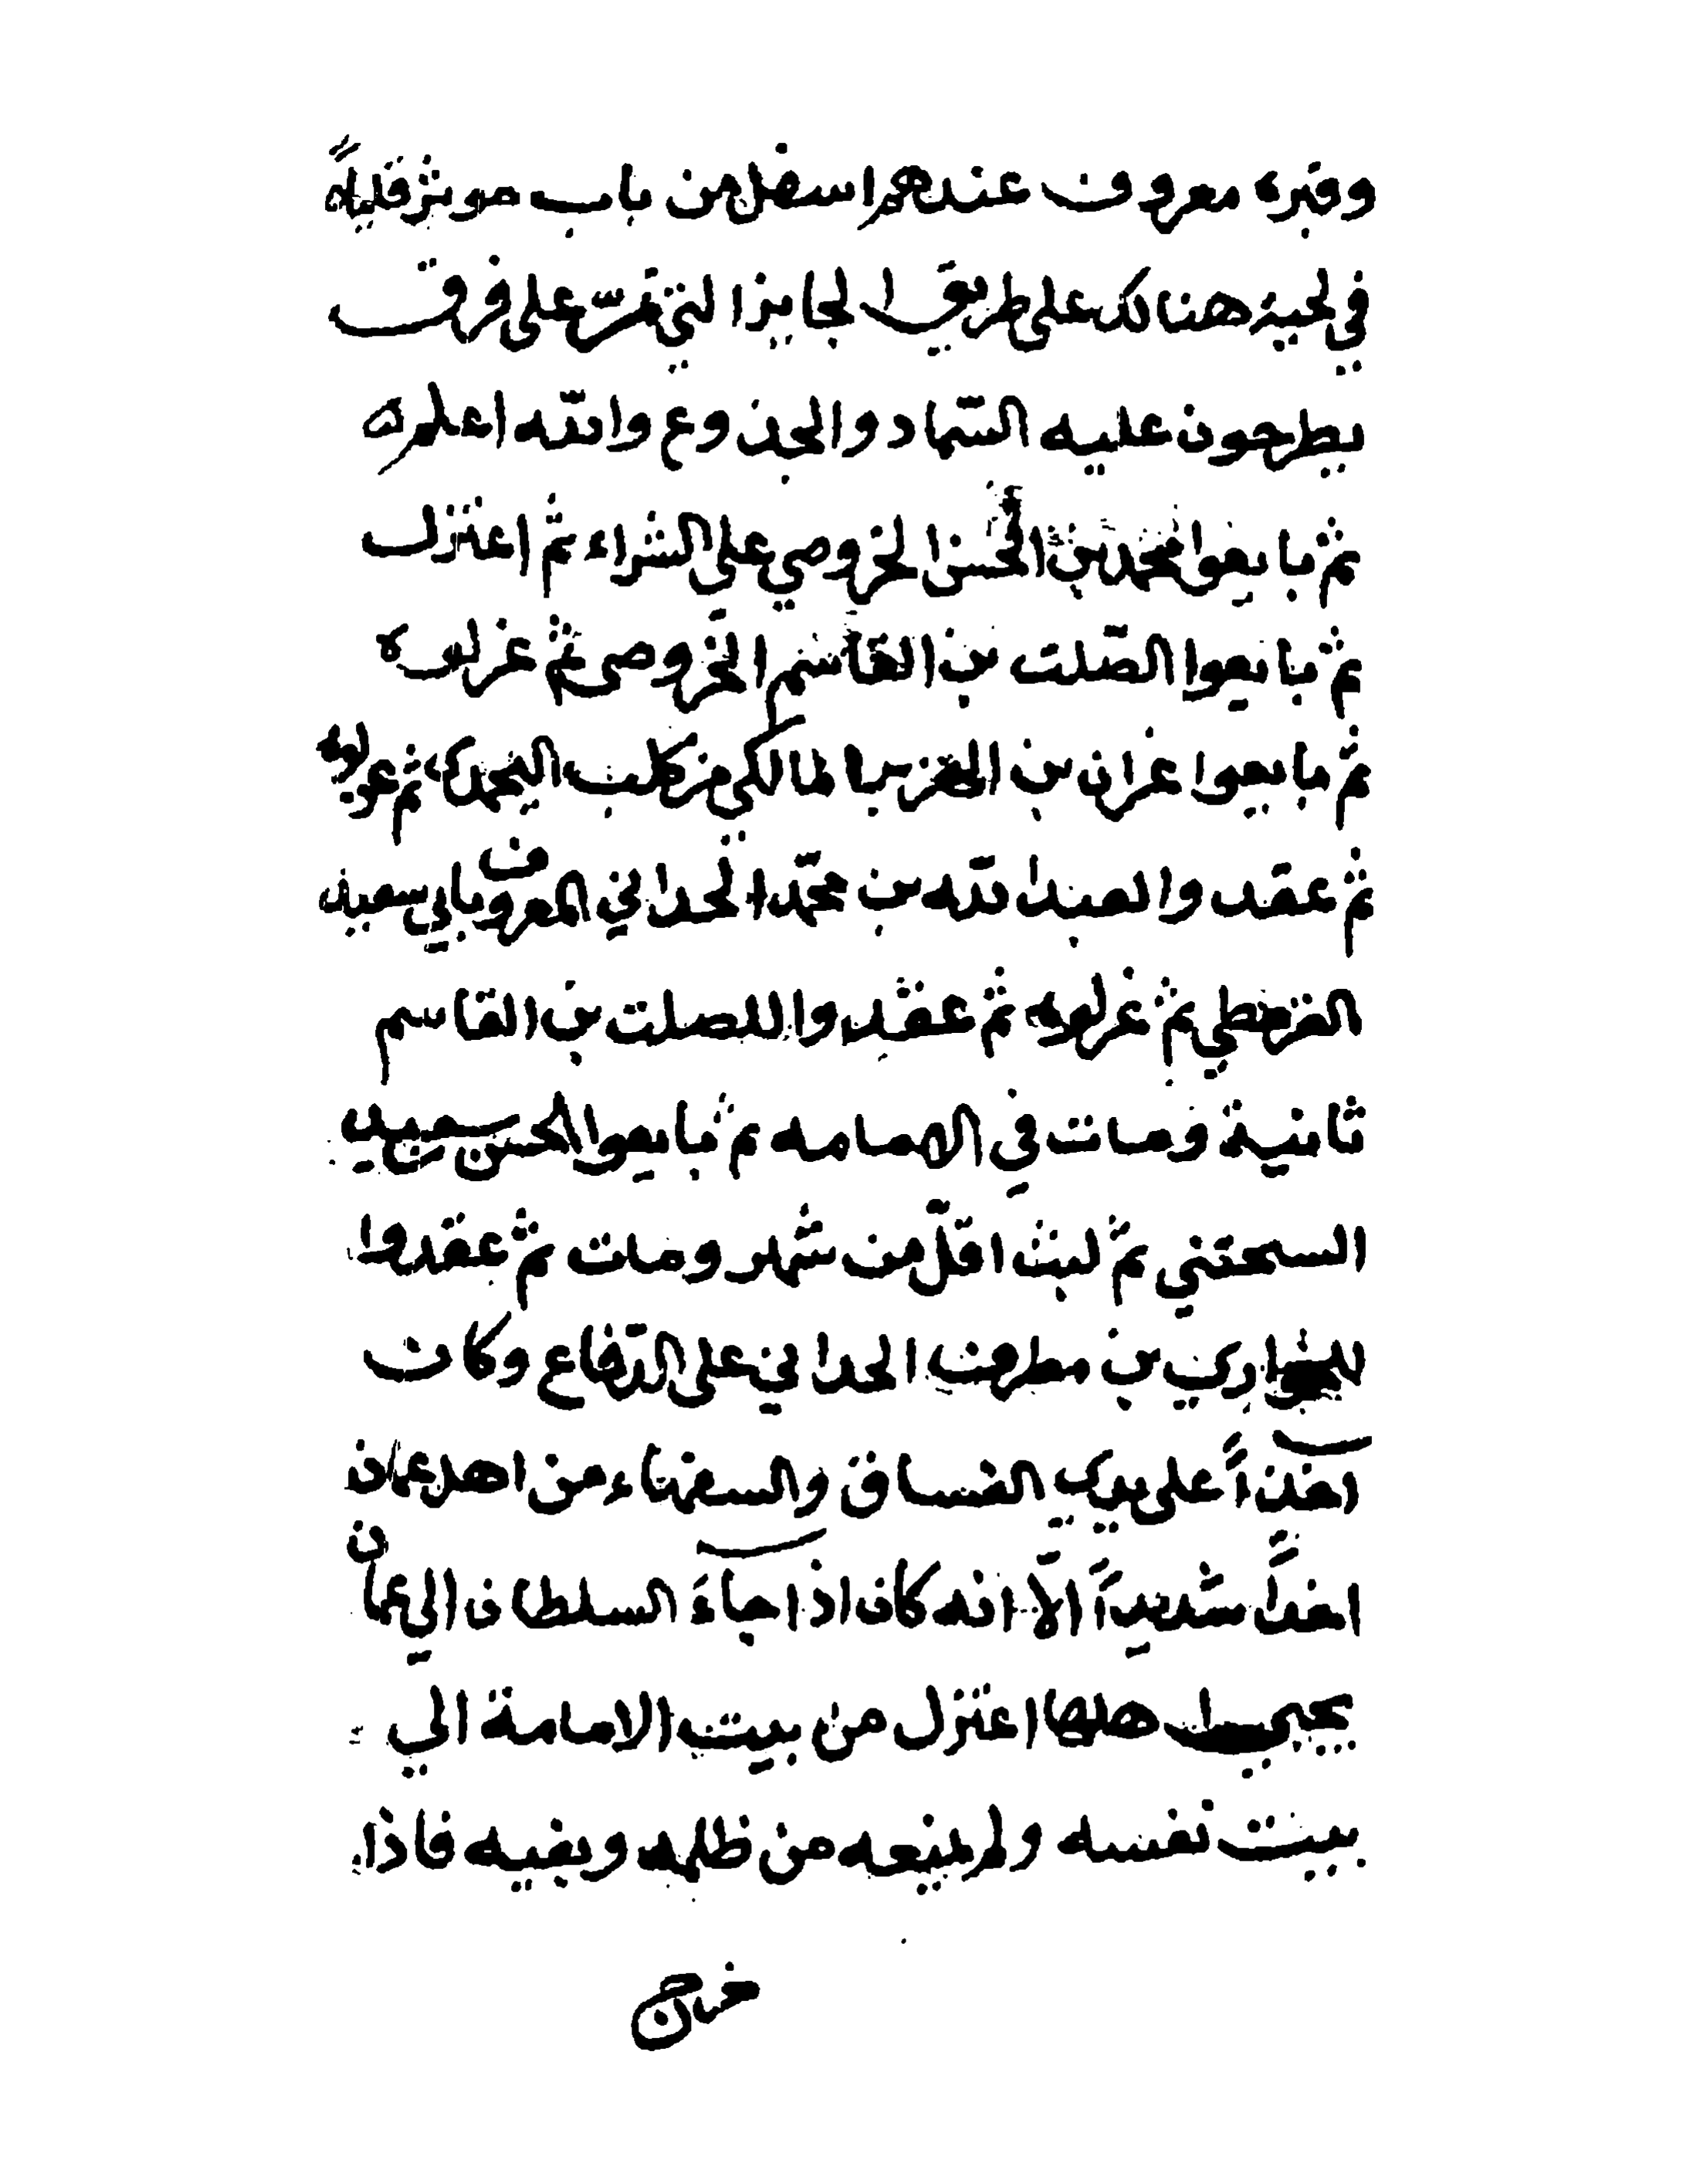 وقبره معروف عندهم اسفل من باب موثر قليلاً
في لحية هنالك على طريق الجايز التي تمرّ على فرق
يطرحون عليه السّماد والجذوع والله اعلم ه
ثم بايعوا محمد بن الحسن الخروصي على الشراء ثم اعتزل
ثم بايعوا الصّلت بن القاسم الخروصي ثم عزلوه
ثم بايعوا عزان بن الهزبر المالكي من كلب اليحمدي ثم عزلوه
ثم عقدوا لعبد الله بن محمّد الحداني المعروف بابي سعيد
القرمطي ثم عزلوه ثم عقدوا للصلت بن القاسم
ثانية ومات في الامامه ثم بايعوا الحسن بن سعيد
السحتني ثم لبث اقلّ من شهر ومات ثم عقدوا
للحواري بن مطرف الحداني على الدّفاع وكان
اخذاً على يدي الفساق والسفهاء من اهل عمان
اخذاً شديداً الّا انه كان اذا جاءَ السلطان الي عمان
يجبي اهلها اعتزل من بيت الامامة الي
بيت نفسه ولم يمنعه من ظلمه وبغيه فاذا
خرج